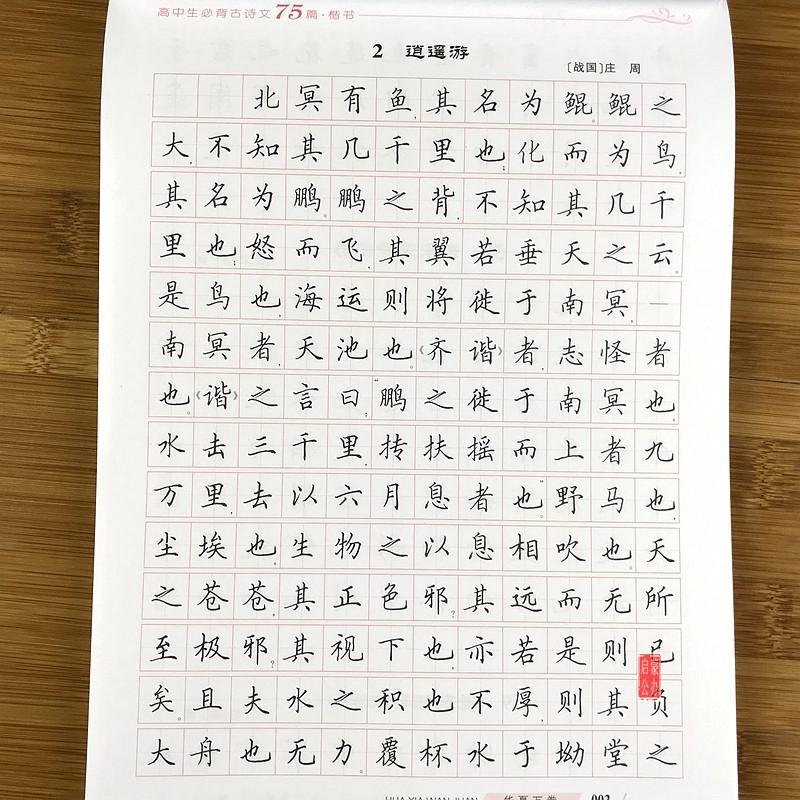 高中生必背古诗文75篇·楷书
2 逍遥游
〔战国〕庄 周
北冥有鱼,其名为鲲。鲲之
大,不知其几千里也;化而为鸟,
其名为鹏。鹏之背,不知其几千
里也;怒而飞,其翼若垂天之云。
是鸟也,海运则将徙于南冥,—
南冥者,天池也。《齐谐》者,志怪者
也。《谐》之言曰:“鹏之徙于南冥也,
水击三千里,抟扶摇而上者九
万里,去以六月息者也。”野马也,
尘埃也,生物之以息相吹也。天
之苍苍,其正色邪?其远而无所
至极邪?其视下也,亦若是则已
矣。且夫水之积也不厚,则其负
大舟也无力。覆杯水于坳堂之
HUA XIA WAN JUAN 华夏万卷 002